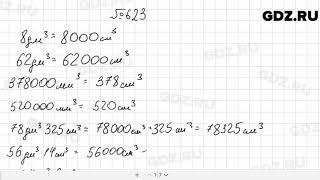 GDZ.RU
№623
8дм³ = 8000см³
62дм³ = 62000 см³
378000мм³ = 378см³
520000 мм³ = 520см³
78дм³ 325 см³ = 78000см³ + 325 см³ = 78325 см³
56дм³ 14см³ = 56000см³
GDZ.RU